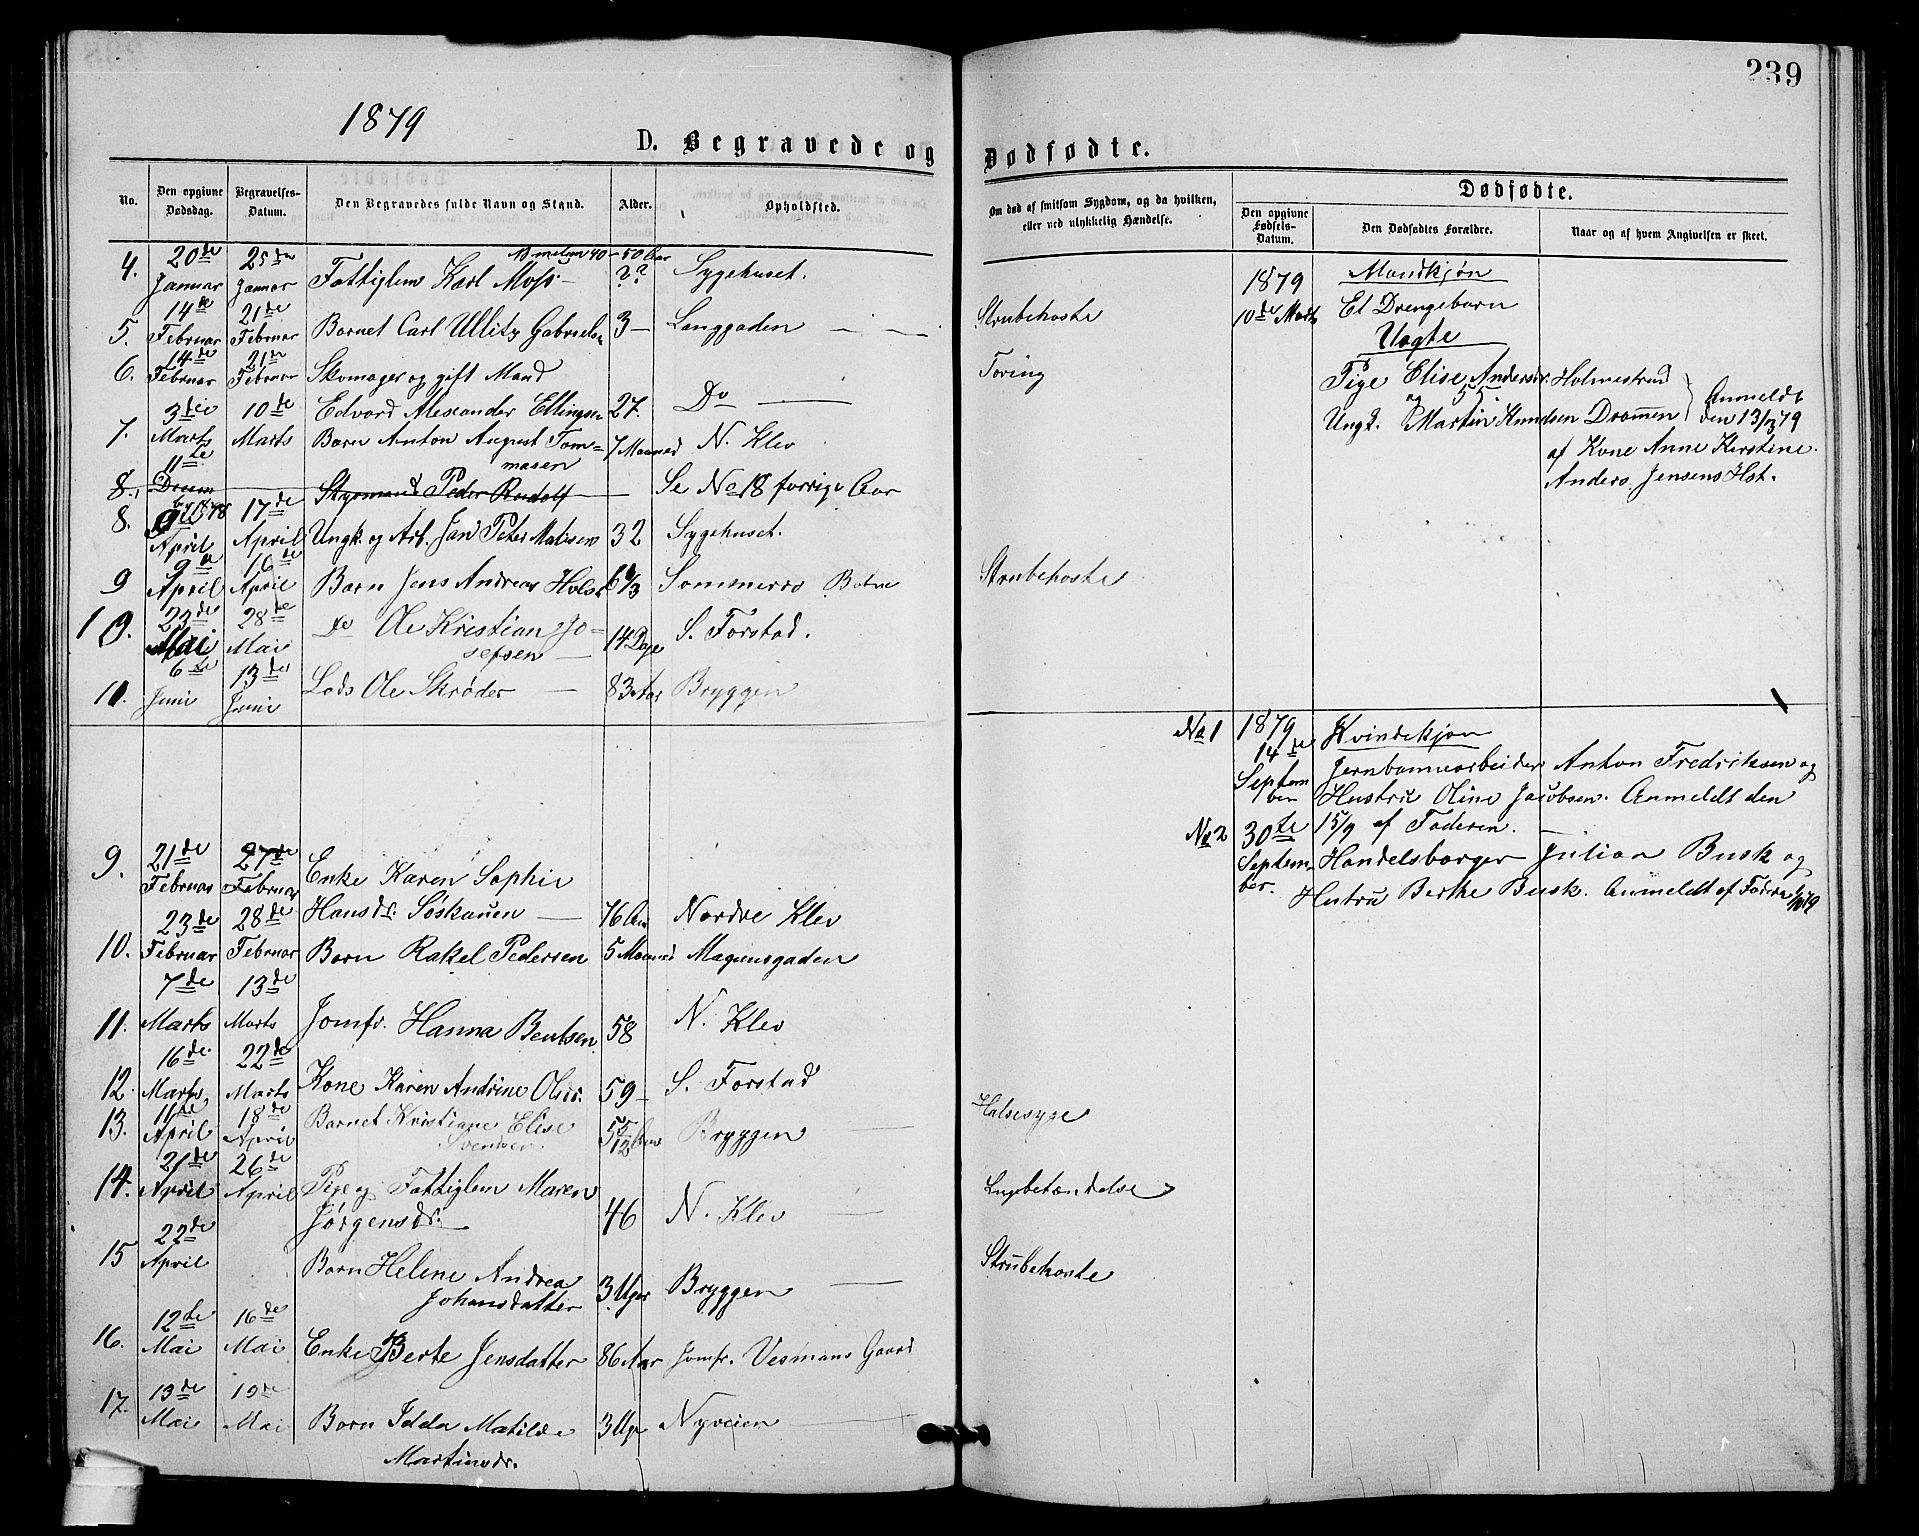 1879
239
D. Begravede og Dødfødte.
No. Den opgivne Dødsdag. Begravelses-Datum. Den Begravedes fulde Navn og Stand. Alder. Opholdsted.
Om død af smitsom Sygdom, og da hvilken, eller ved ulykkelig Hændelse.
Dødfødte.
Den opgivne Fødsels-Datum. Den Dødfødtes Forældre. Naar og af hvem Angivelsen er skeet.
4. 20de Januar 25de Januar Fattiglem Karl Moss — mellem 40–50 Aar ?? Sygehuset.
5. 14de Februar 21de Februar Barnet Carl Ullitz Gabrielsen 3 — Langgaden — Strubehoste
6. 14de Februar 21de Februar Skomager og gift Mand
Edvard Alexander Ellingsen 27. Do — Tæring
7. 3die Marts 10de Marts Barn Anton August Tom-
masen 7 Maaned N. Klev
8. 11te Decem 1878 Styrmand Peder Rudolf — Se No 18 forrige Aar
8. April 17de April Ungk. og Arb. Jan Peter Matisen 32 Sygehuset.
9 9de April 16de April Barn Jens Andreas Holst 6 1/3 Sommerro Botne Strubehoste
10. 23de Mai 28de Mai do Ole Kristian Jo-
sefsen — 14 Dage S. Forstad.
11. 6te Juni 13de Juni Lods Ole Skrøder — 83 Aar Bryggen
9. 21de Februar 27de Februar Enke Karen Sophie
Hansdr. Söskauen — 76 Aar Nordre Klev
10. 23de Februar 28de Februar Barn Rakel Pedersen 5 Maaned Magnusgaden
11. 7de Marts 13de Marts Jomfr. Hanna Bentsen 58 N. Klev
12. 16de Marts 22de Marts Kone Karen Andrine Olsdr. 59 — S. Forstad
13. 11te April 18de April Barnet Kristiane Elise
Svendsen. 5 5/12 Aar Bryggen — Halsesyge
14. 21de April 26de April Pige og Fattiglem Maren
Jørgensdr. — 46 N. Klev — Lugbetændelse
15 22de April Barn Helene Andrea
Johansdatter 3 Uger Bryggen — Strubehoste
16. 12te Mai 16de Mai Enke Berte Jensdatter 86 Aar Jomfr. Vesmans Gaard
17. 13de Mai 19de Mai Barn Idda Matilde
Martinsdr. 3 Uger Nyveien
1879 Mandkjøn
10de Marts Et Drengebarn
Uægte
Pige Elise Andersdr. Holmestrand
og
Ungk. Martin Knudsen Drammen
Anmeldt den 13/3 79
af Kone Anne Kirstine
Anders Jensens Hst.
No 1 1879 Kvindekjøn
14de September Jernbanearbeider Anton Fredriksen og
Hustru Oline Jacobsen. Anmeldt den
15/9 af Faderen. —
No 2 30te September. Handelsborger Julian Busk og
Hustru Berthe Busk. Anmeldt af Faderen